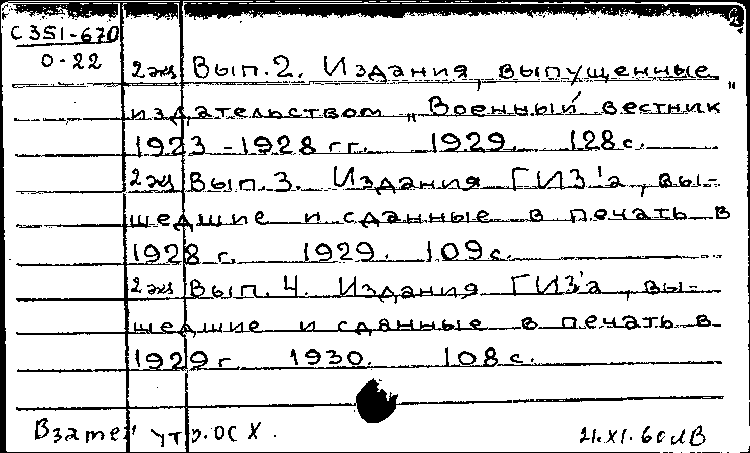 2
С 351-670
0-22
2 экз Вып. 2. Издания, выпущенные
издательством „Военный вестник"
1923-1928 гг. 1929. 128 с.
2 экз Вып. 3. Издания ГИЗ'а, вы-
шедшие и сданные в печать в
1928 г. 1929. 109 с.
2 экз Вып. 4. Издания ГИЗ'а, вы-
шедшие и сданные в печать в
1929 г 1930. 108 с.
Взамен утр. ОСХ. 21.XI.60